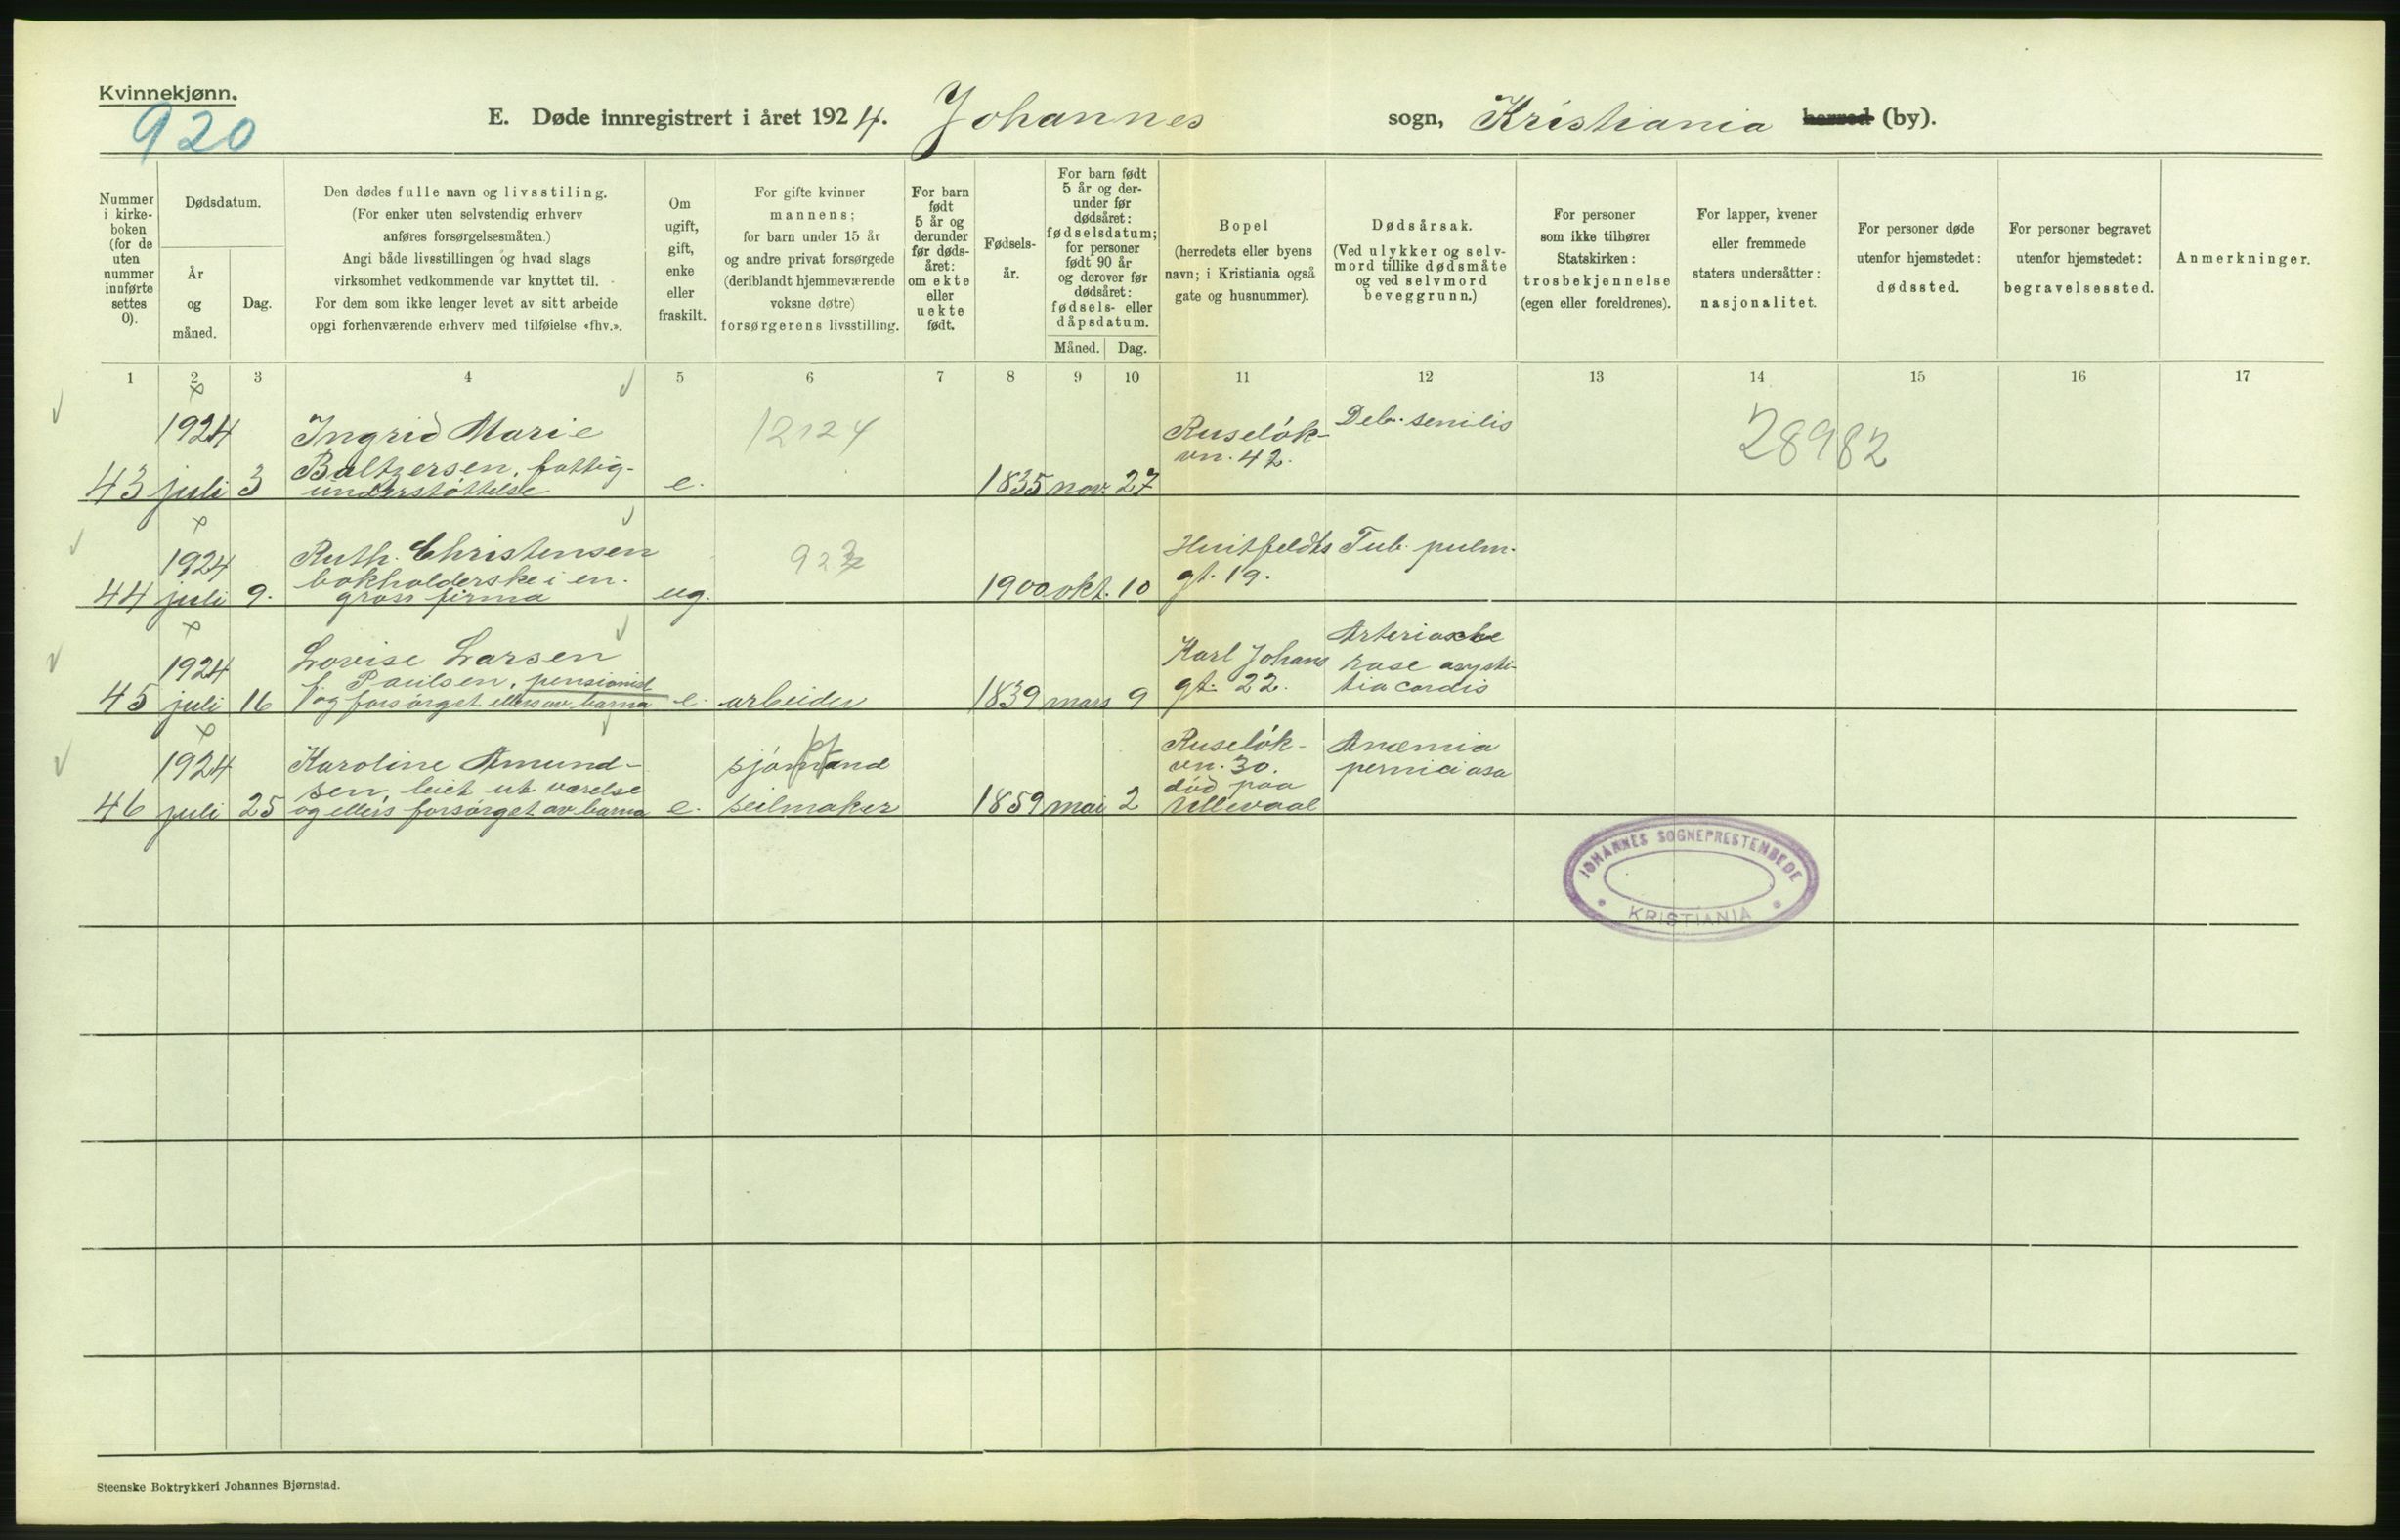 Kvinnekjønn.
920
E. Døde innregistrert i året 1924. Johannes sogn, Kristiania herred (by).
Nummer
i kirke-
boken
(for de
uten
nummer
innførte
settes
0).
Dødsdatum.
År
og
måned.
Dag.
Den dødes fulle navn og livsstiling.
(For enker uten selvstendig erhverv
anføres forsørgelsesmåten.)
Angi både livsstillingen og hvad slags
virksomhet vedkommende var knyttet til.
For dem som ikke lenger levet av sitt arbeide
opgi forhenværende erhverv med tilføielse «fhv.».
Om
ugift,
gift,
enke
eller
fraskilt.
For gifte kvinner
mannens;
for barn under 15 år
og andre privat forsørgede
(deriblandt hjemmeværende
voksne døtre)
forsørgerens livsstilling.
For barn
født
5 år og
derunder
før døds-
året:
om ekte
eller
uekte
født.
Fødsels-
år.
For barn født
5 år og der-
under før
dødsåret:
fødselsdatum;
for personer
født 90 år
og derover før
dødsåret:
fødsels- eller
dåpsdatum.
Måned. Dag.
Bopel
(herredets eller byens
navn; i Kristiania også
gate og husnummer).
Dødsårsak.
(Ved ulykker og selv-
mord tillike dødsmåte
og ved selvmord
beveggrunn.)
For personer
som ikke tilhører
Statskirken:
trosbekjennelse
(egen eller foreldrenes).
For lapper, kvener
eller fremmede
staters undersåtter:
nasjonalitet.
For personer døde
utenfor hjemstedet:
dødssted.
For personer begravet
utenfor hjemstedet:
begravelsessted.
Anmerkninger.
1 2 3 4 5 6 7 8 9 10 11 12 13 14 15 16 17
1924 Ingrid Marie 12124 Ruseløk- Deb. senilis 28982
Baltzersen, fattig- vn. 42.
43 juli 3 understøttelse e. 1835 nov. 27
1924 Ruth Christensen 92 Huitfeldts Tub. pulm.
bokholderske i en. gt. 19.
44 juli 9. gross firma ug. 1900 okt. 10
1924 Lovise Larsen Karl Johans Arterioscle
f. Paulsen, pensionist gt. 22. rose asysto-
45 juli 16 og forsørget ellers av barna e. arbeider 1839 mars 9 lia cordis
1924 Karoline Amund- sjømand Ruseløk- Anæmia
sen, leiet ut værelse vn. 30. perniciosa
død paa
46 juli 25 og ellers forsørget av barna e. seilmaker 1859 mai 2 Ullevaal
JOHANNES SOGNEPRESTEMBEDE
KRISTIANIA
Steenske Boktrykkeri Johannes Bjørnstad.